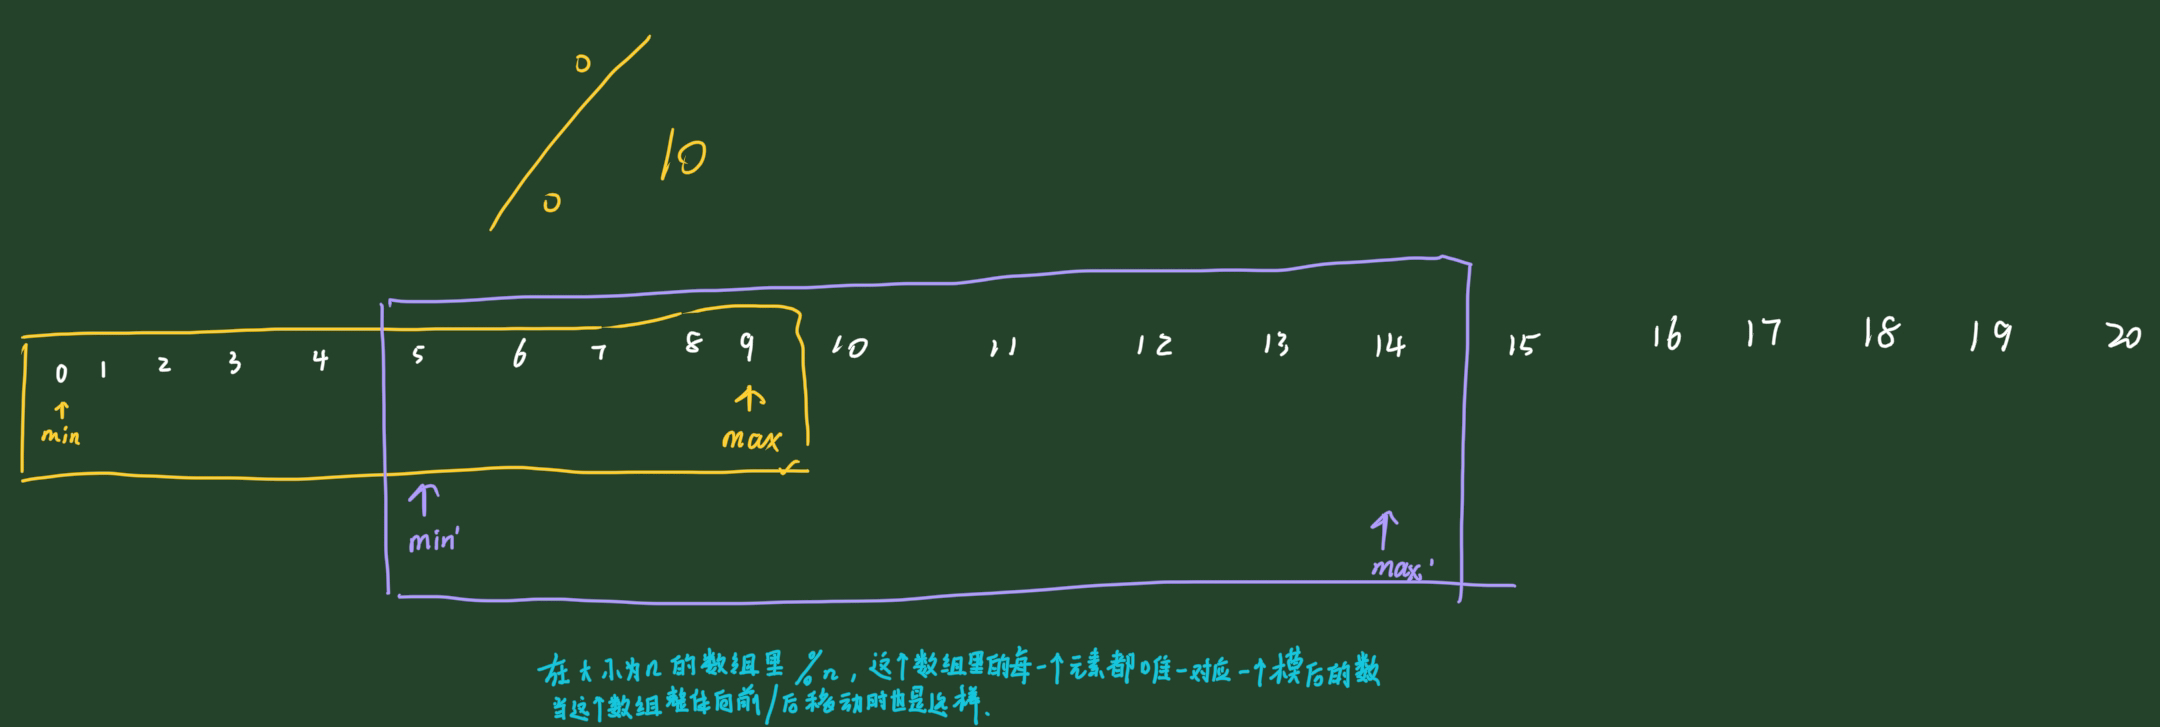 % 10
0 1 2 3 4 5 6 7 8 9 10 11 12 13 14 15 16 17 18 19 20
min max
min' max'
在大小为n的数组里%n，这个数组里的每一个元素都唯一对应一个模后的数
当这个数组整体向前/后移动时也是这样.